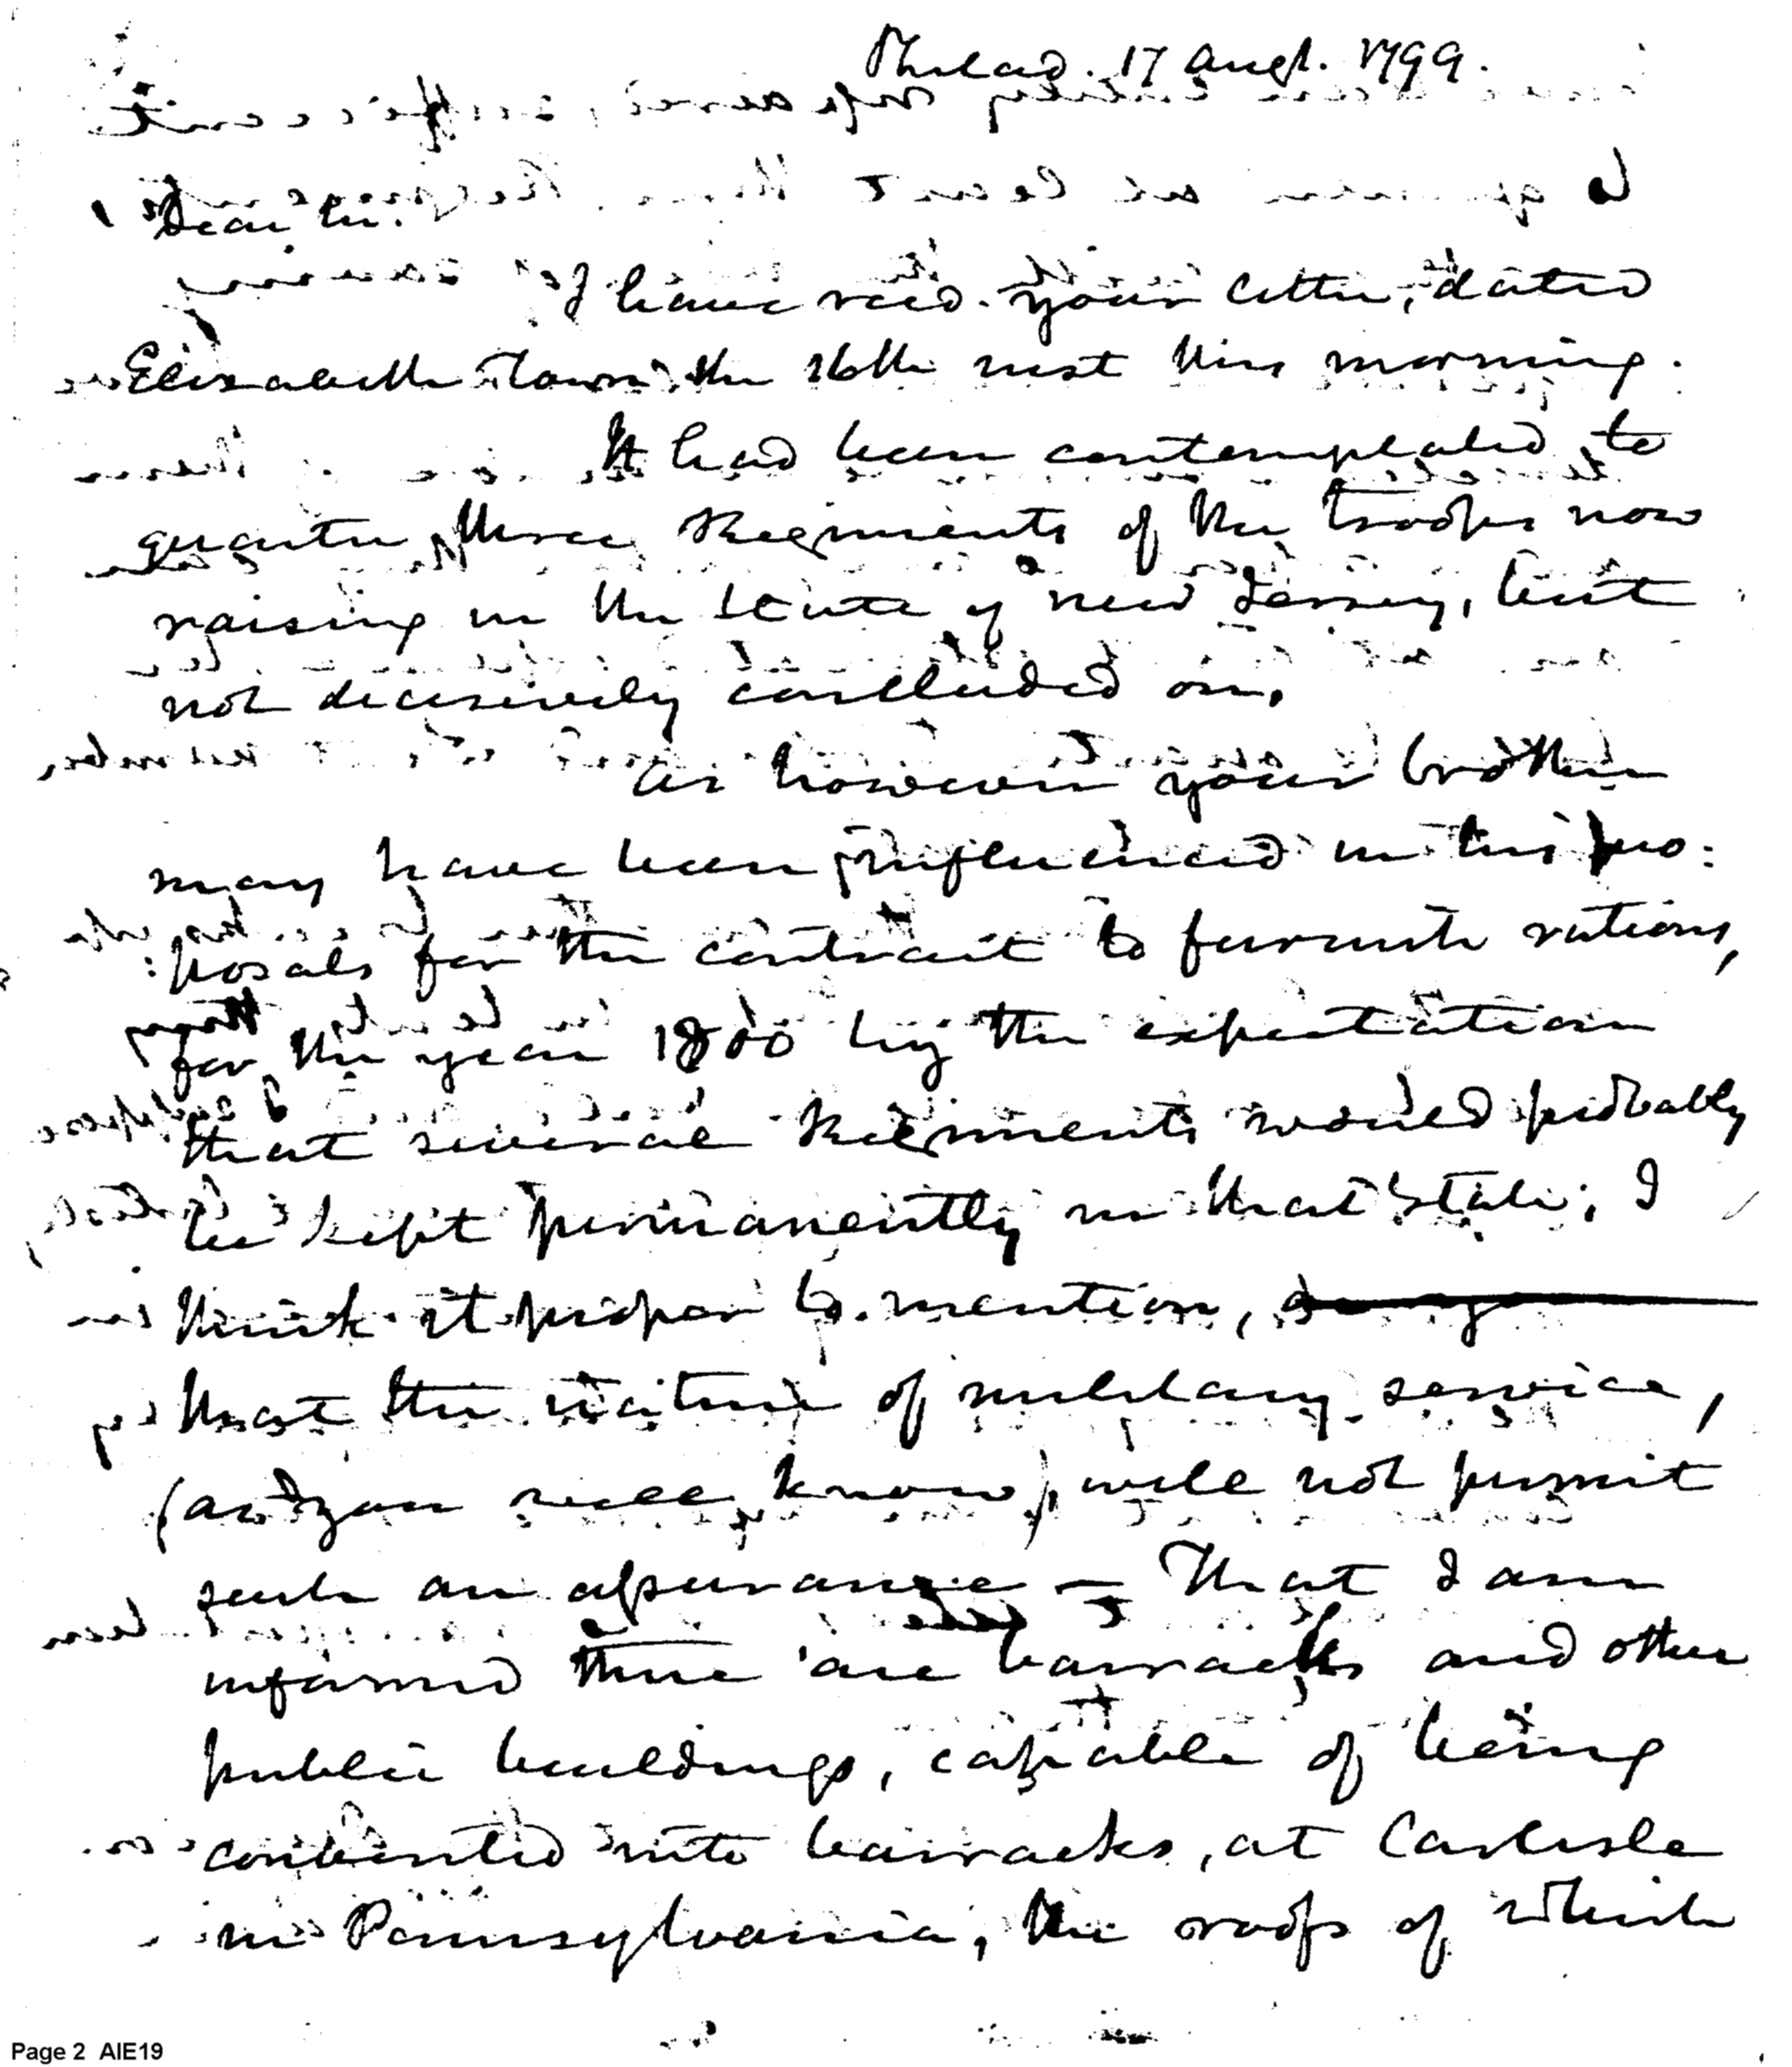 Philad. 17 Augt. 1799.
Dear Sir.
I have recd. your letter, dated
Elizabeth Town the 16th inst this morning.
It had been contemplated to
quarter three Regiments of the troops now
raising in the State of New Jersey, but
not decisively concluded on.
As however your brother
may have been influenced in his pro:
:posals for the contract to furnish rations,
for the year 1800 by the expectation
that several Regiments would probably
be kept permanently in that State; I
think it proper to mention,
that the nature of military service,
(as you well know) will not permit
such an assurance — That I am
informed there are barracks and other
public buildings, capable of being
converted into barracks, at Carlisle
in Pennsylvania, the roofs of which
Page 2 AIE19